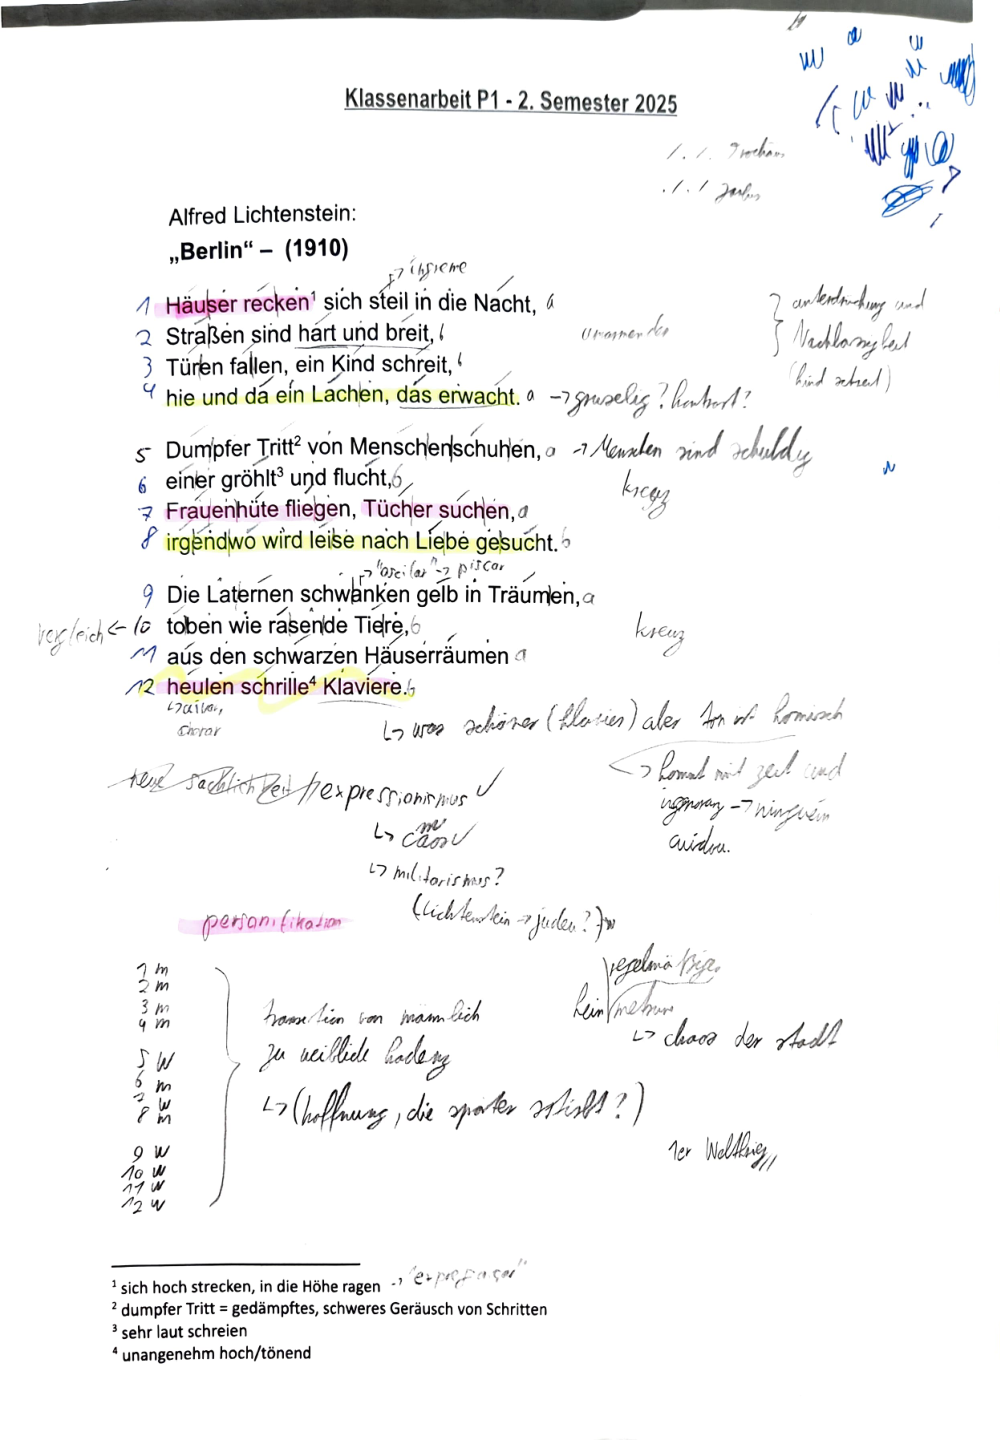 Klassenarbeit P1 - 2. Semester 2025
/ . / . Trochäus
. / . / Jambus
Alfred Lichtenstein:
„Berlin“ – (1910)
→ íngreme
1 Häuser recken¹ sich steil in die Nacht, a
2 Straßen sind hart und breit, b
3 Türen fallen, ein Kind schreit, b
4 hie und da ein Lachen, das erwacht. a → gruselig? kontrast?
umarmender
unterdruckung und
Nachlässigkeit
(kind schreit)
5 Dumpfer Tritt² von Menschenschuhen, a → Menschen sind schuldig
6 einer gröhlt³ und flucht, b
kreuz
7 Frauenhüte fliegen, Tücher suchen, a
8 irgendwo wird leise nach Liebe gesucht. b
→ "oscilar" → piscar
9 Die Laternen schwanken gelb in Träumen, a
vergleich ← 10 toben wie rasende Tiere, b
kreuz
11 aus den schwarzen Häuserräumen a
12 heulen schrille⁴ Klaviere. b
↳ uivar,
chorar
↳ was schönes (klavier) aber ton ist komisch
→ kommt mit zeit und
→ ninguém
neue sachlichkeit / expressionismus ✓
↳ caos ✓
↳ militarismus?
(Lichtenstein → juden?)
personifikation
1 m
2 m
3 m
4 m
5 w
6 m
7 w
8 m
9 w
10 w
11 w
12 w
transition von männlich
zu weibliche kadenz
↳ (hoffnung, die später stirbt?)
regelmäßiges
kein metrum
↳ chaos der stadt
1er Weltkrieg
¹ sich hoch strecken, in die Höhe ragen
² dumpfer Tritt = gedämpftes, schweres Geräusch von Schritten
³ sehr laut schreien
⁴ unangenehm hoch/tönend